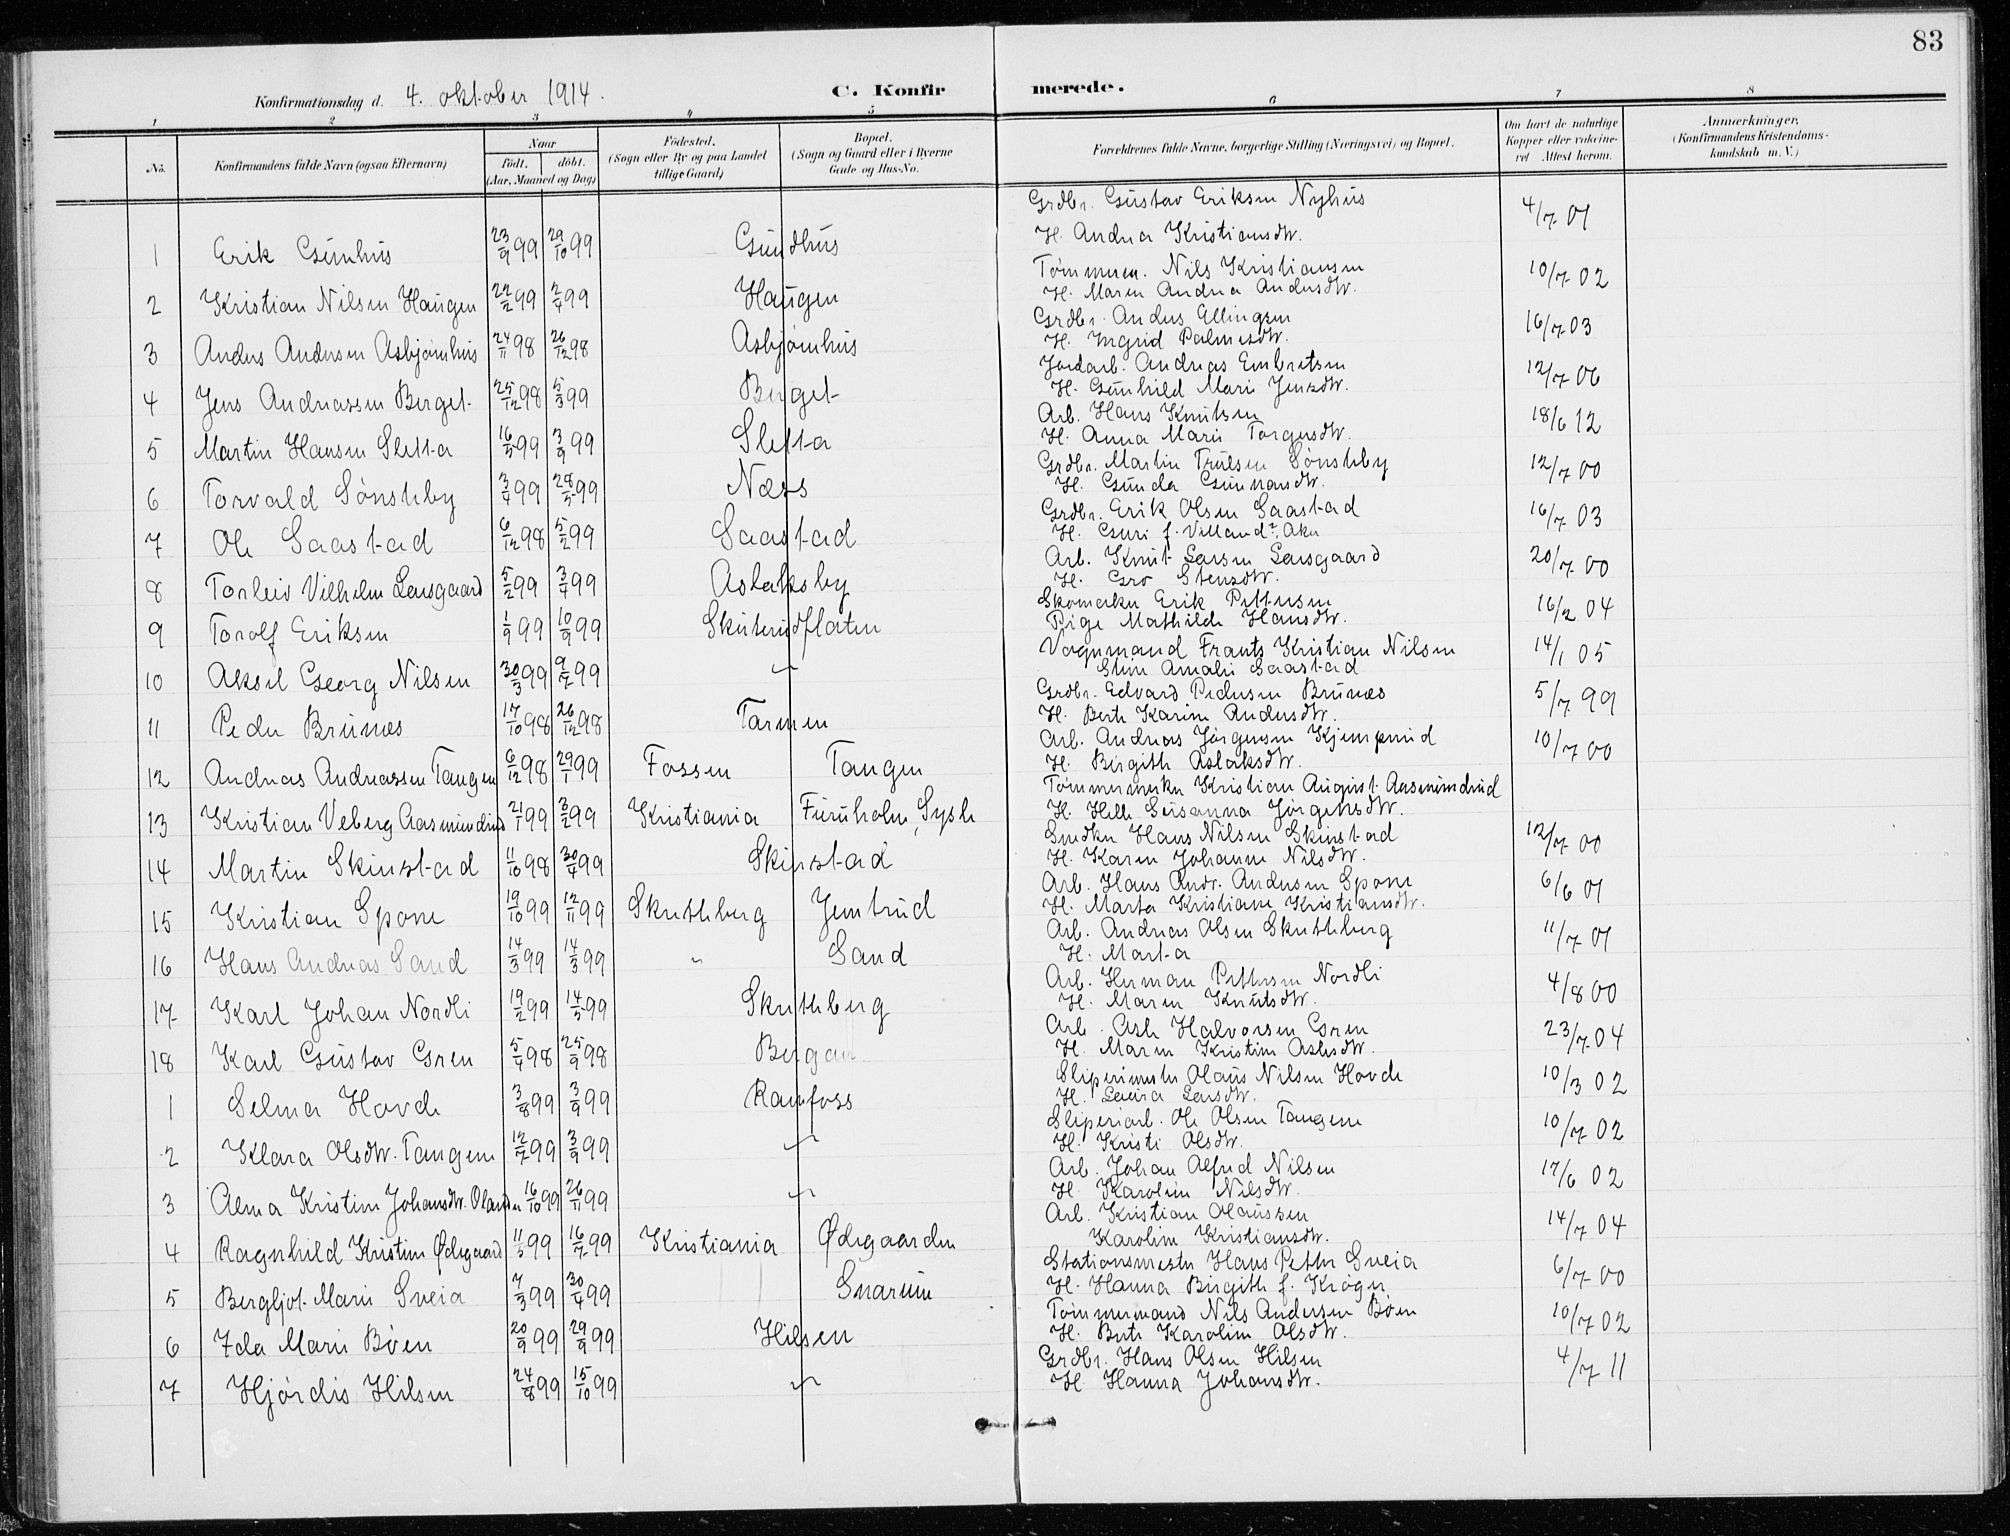 83
Konfirmationsdag d. 4. oktober 1914. C. Konfirmerede.
1 2 3 4 5 6 7 8
No. Konfirmandens fulde Navn (ogsaa Efternavn) Naar født. døbt. (Aar, Maaned og Dag) Fødested. (Sogn eller By og paa Landet tillige Gaard) Bopæl. (Sogn og Gaard eller i Byerne Gade og Hus-No. Forældrenes fulde Navne, borgerlige Stilling (Næringsvei) og Bopæl. Om havt de naturlige Kopper eller vakcineret Attest herom. Anmærkninger. (Konfirmandens Kristendomskundskab m. V.)
Grdbr. Gustav Eriksen Nyhus
1 Erik Gunhus 23/9 99 29/10 99 Gundhus H. Andrea Kristiansdtr. 4/7 01
Tømmerm. Nils Kristiansen
2 Kristian Nilsen Haugen 22/2 99 2/4 99 Haugen H. Maren Andrea Andersdtr. 10/7 02
Grdbr. Anders Ellingsen
3 Anders Andersen Asbjørnhus 24/11 98 26/12 98 Asbjørnhus H. Ingrid Palmesdtr. 16/7 03
Jordarb. Andreas Embretsen
4 Jens Andreassen Berget 25/12 98 5/3 99 Berget H. Gunhild Marie Jensdtr. 12/7 06
Arb. Hans Knutsen
5 Martin Hansen Sletta 16/5 99 3/9 99 Sletta H. Anna Marie Torgersdtr. 18/6 12
Grdbr. Martin Trulsen Sønsteby
6 Torvald Sønsteby 3/4 99 28/5 99 Næss H. Gunda Gunnarsdtr. 12/7 00
Grdbr. Erik Olsen Saastad
7 Ole Saastad 6/12 98 5/2 99 Saastad H. Guri f. Villand, Aker 16/7 03
Arb. Knut Larsen Larsgaard
8 Torleiv Vilhelm Larsgaard 5/2 99 3/4 99 Aslaksby H. Gro Stensdtr. 20/7 00
Skomaker Erik Pettersen
9 Torolf Eriksen 1/9 99 10/9 99 Skuterudflaten Pige Mathilde Hansdtr. 16/2 04
Vognmand Frants Kristian Nilsen
10 Aksel Georg Nilsen 30/3 99 9/7 99 " Stine Amalie Saastad 14/1 05
Grdbr. Edvard Pedersen Brunes
11 Peder Brunes 17/10 98 26/12 98 Tarmen H. Berte Karine Andersdtr. 5/7 99
Arb. Andreas Jørgensen Kjemperud
12 Andreas Andreassen Tangen 6/12 98 29/1 99 Fossen Tangen H. Birgithe Aslaksdtr. 10/7 00
Tømmermerker Kristian August Aasmundrud
13 Kristian Veberg Aasmundrud 21/1 99 3/2 99 Kristiania Furuholm, Sysle H. Helle Susanna Jørgensdtr.
Snedker Hans Nilsen Skinstad
14 Martin Skinstad 11/10 98 30/4 99 Skinstad H. Karen Johanne Nilsdtr. 12/7 00
Arb. Hans Andr. Andersen Spone
15 Kristian Spone 19/10 99 12/11 99 Skretteberg Jemtrud H. Marta Kristiane Kristiansdtr. 6/6 01
Arb. Andreas Olsen Skretteberg
16 Hans Andreas Sand 14/3 99 14/3 99 " Sand H. Marta 11/7 01
Arb. Herman Pettersen Nordli
17 Karl Johan Nordli 19/2 99 14/5 99 Skretteberg H. Maren Knutsdtr. 4/8 00
Arb. Asle Halvorsen Gren
18 Karl Gustav Gren 5/4 98 25/9 98 Bergan H. Maren Kristine Aslesdtr. 23/7 04
Sliperimester Olaus Nilsen Hovde
1 Selma Hovde 3/8 99 3/9 99 Ramfoss H. Laura Larsdtr. 10/3 02
Sliperiarb. Ole Olsen Tangene
2 Klara Olsdtr. Tangene 12/7 99 3/9 99 " H. Kristi Olsdtr. 10/7 02
Arb. Johan Alfred Nilsen
3 Alma Kristine Johansdtr. 16/10 99 26/11 99 " H. Karoline Nilsdtr. 17/6 02
Arb. Kristian Olaussen
4 Ragnhild Kristine Ødegaard 11/5 99 16/7 99 Kristiania Ødegaarden Karoline Kristiansdtr. 14/7 04
Stationsmester Hans Petter Sveia
5 Bergljot Marie Sveia 7/3 99 30/4 99 Snarum H. Hanna Birgithe f. Krøger 6/7 00
Tømmermand Nils Andersen Bøen
6 Ida Marie Bøen 20/9 99 29/9 99 Hilsen H. Berte Karoline Olsdtr. 10/7 02
Grdbr. Hans Olsen Hilsen
7 Hjørdis Hilsen 24/8 99 15/10 99 " H Hanna Johansdtr. 4/7 11